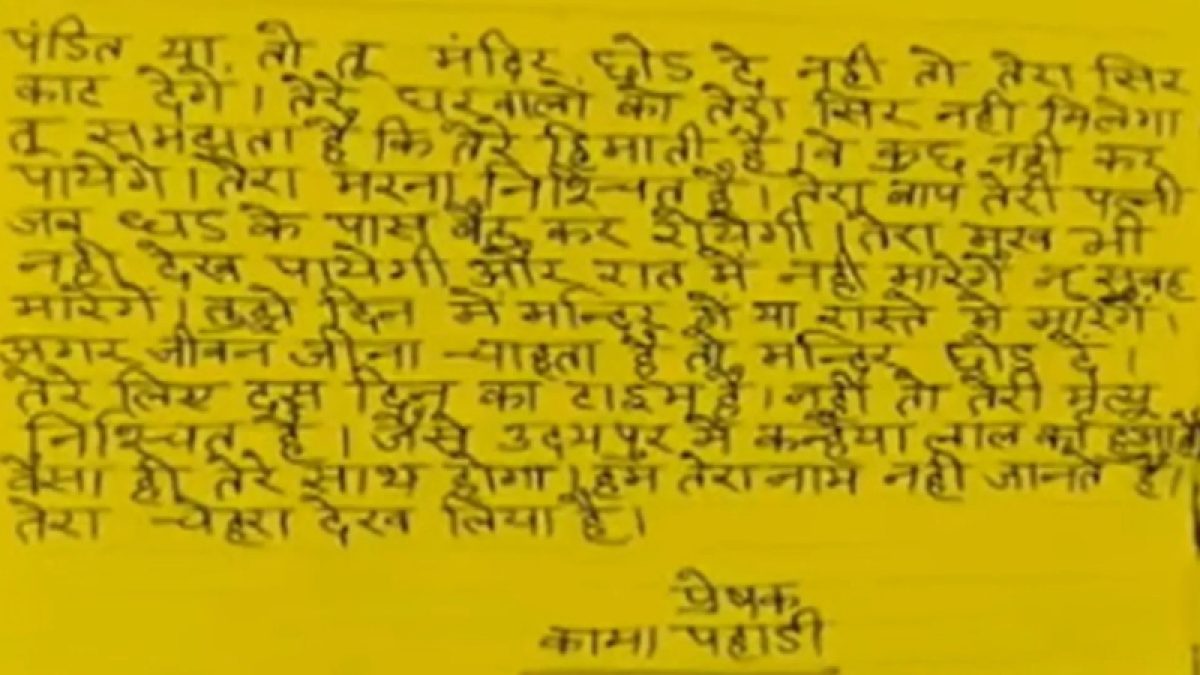 पंडित या तो तू मंदिर छोड दे नही तो तेरा सिर
काट देगे। तेरे घरवालो को तेरा सिर नही मिलेगा
तू समझता है कि तेरे हिमाती है। वे कुछ नही कर
पायेगे। तेरा मरना निश्चित है। तेरा बाप तेरी पत्नी
जब धड के पास बैठ कर रोयेगी। तेरा मुख भी
नही देख पायेगी और रात मे नही मारेगे न सुबह
मारेगे। तुझे दिन मे मन्दिर मे या रास्ते मे मारेगे।
अगर जीवन जीना चाहता है तो मन्दिर छोड दे।
तेरे लिए दस दिन का टाइम है। नही तो तेरी मृत्यु
निश्चित है। जैसे उदयपुर मे कन्हैया लाल का हुआ है
वैसा ही तेरे साथ होगा। हम तेरा नाम नही जानते है।
तेरा चेहरा देख लिया है।
प्रेषक
कामा पहाडी